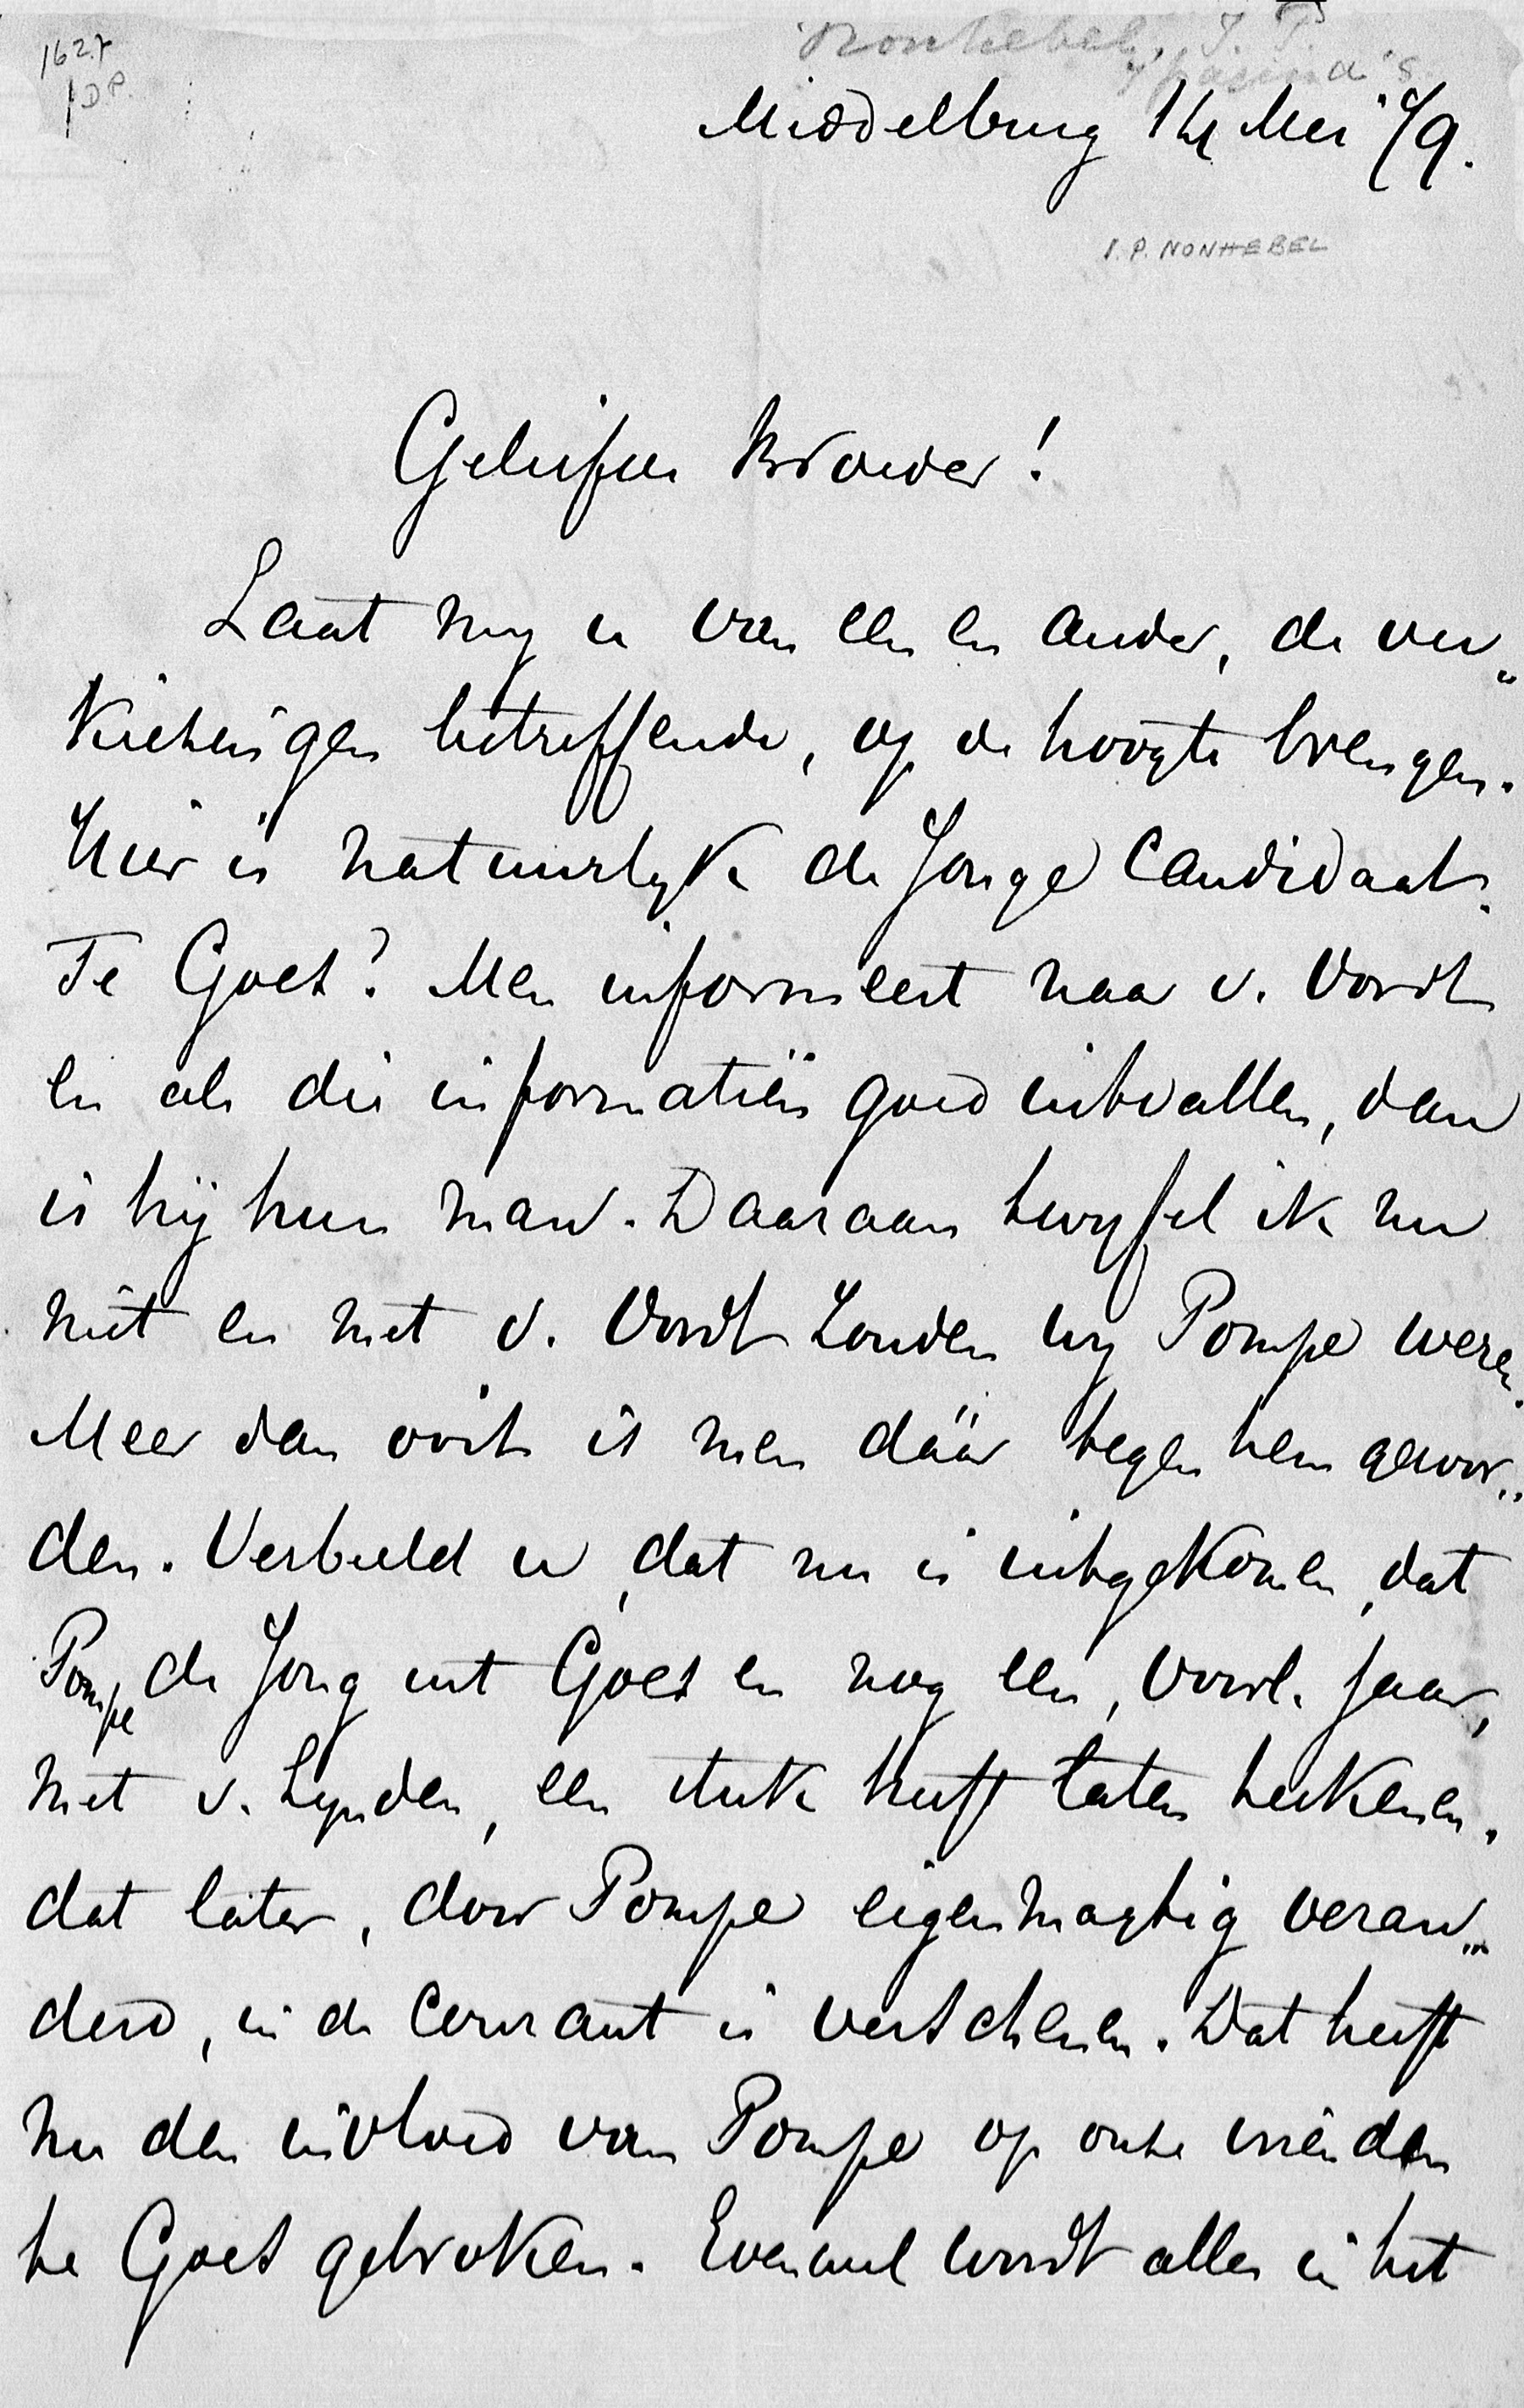 1627
DP.
Nonhebel, J. P.
Middelburg 14 Mei '79.
I. P. NONHEBEL
Geliefde Broeder!
Laat my u van een en ander, de ver„
kiezingen betreffende, op de hoogte brengen.
Hier is natuurlyk de Jonge Candidaat.
Te Goes? Men informeert naar v. Vordt
en als die informatiën goed uitvallen, dan
is hij hun man. Daaraan twyfel ik nu
niet en met v. Vordt zouden wy Pompe weren.
Meer dan ooit is men dáár tegen hem gewor„
den. Verbeeld u, dat nu is uitgekomen, dat
Pompe de Jong uit Goes en nog een, voorl. jaar,
met v. Lynden, een stuk heeft laten teekenen,
dat later, door Pompe eigenmagtig veran„
derd, in de Courant is verschenen. Dat heeft
nu den invloed van Pompe op onze vrienden
te Goes gebroken. Evenwel wordt alles in het